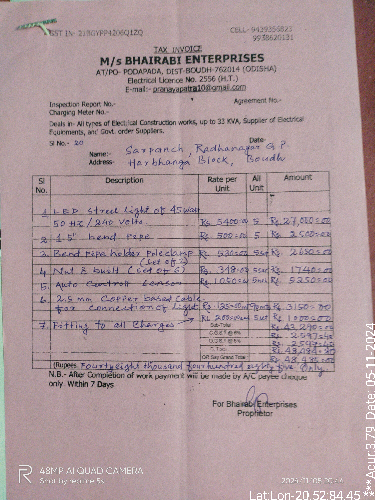 GST IN: 21BGYPP4206Q1ZQ
CELL- 9439356821
9938620131
TAX INVOICE
M/s BHAIRABI ENTERPRISES
AT/PO- PODAPADA, DIST-BOUDH-762014 (ODISHA)
Electrical Licence No. 2556 (H.T.)
E-mail:- pranayapatra10@gmail.com
Inspection Report No.- Agreement No.-
Charging Meter No.-
Deals in- All types of Electrical Construction works, up to 33 KVA, Supplier of Electrical
Equipments, and Govt. order Suppliers.
Sl No.- 20 Date-
Name:- Sarpanch, Radhanagar G P
Address- Harbhanga Block, Boudh
Sl No. Description Rate per Unit All Unit Amount
1. LED Street Light of 45watt
50 HZ / 240 volts. Rs. 5400=00 5 Rs. 27,000=00
2. 1.5" bend pipe Rs. 500=00 5 Rs. 2500=00
3. Bend pipe holder pole clamp Rs. 530=00 5set Rs. 2650=00
(set of 2)
4. Nut & bush (set of 6) Rs. 348=00 5set Rs. 1740=00
5. Auto Controll Sensor Rs. 1050=00 5nos Rs. 5250=00
6. 2.5 mm Copper based Cable
for connection of Light Rs. 3150=00
7. Fitting to all Charges Rs. 200=00 5set Rs. 1000=00
Sub-Total 43,290=00
G.Total
OR Say Grand Total
(Rupees Fourty eight thousand four hundred eighty five Only.
N.B.- After Completion of work payment will be made by A/C payee cheque
only Within 7 Days
For Bhairabi Enterprises
Proprietor
48MP AI QUAD CAMERA
Lat Lon-20 52:84.45
***Acur 3.79 Date: 05-11-2024